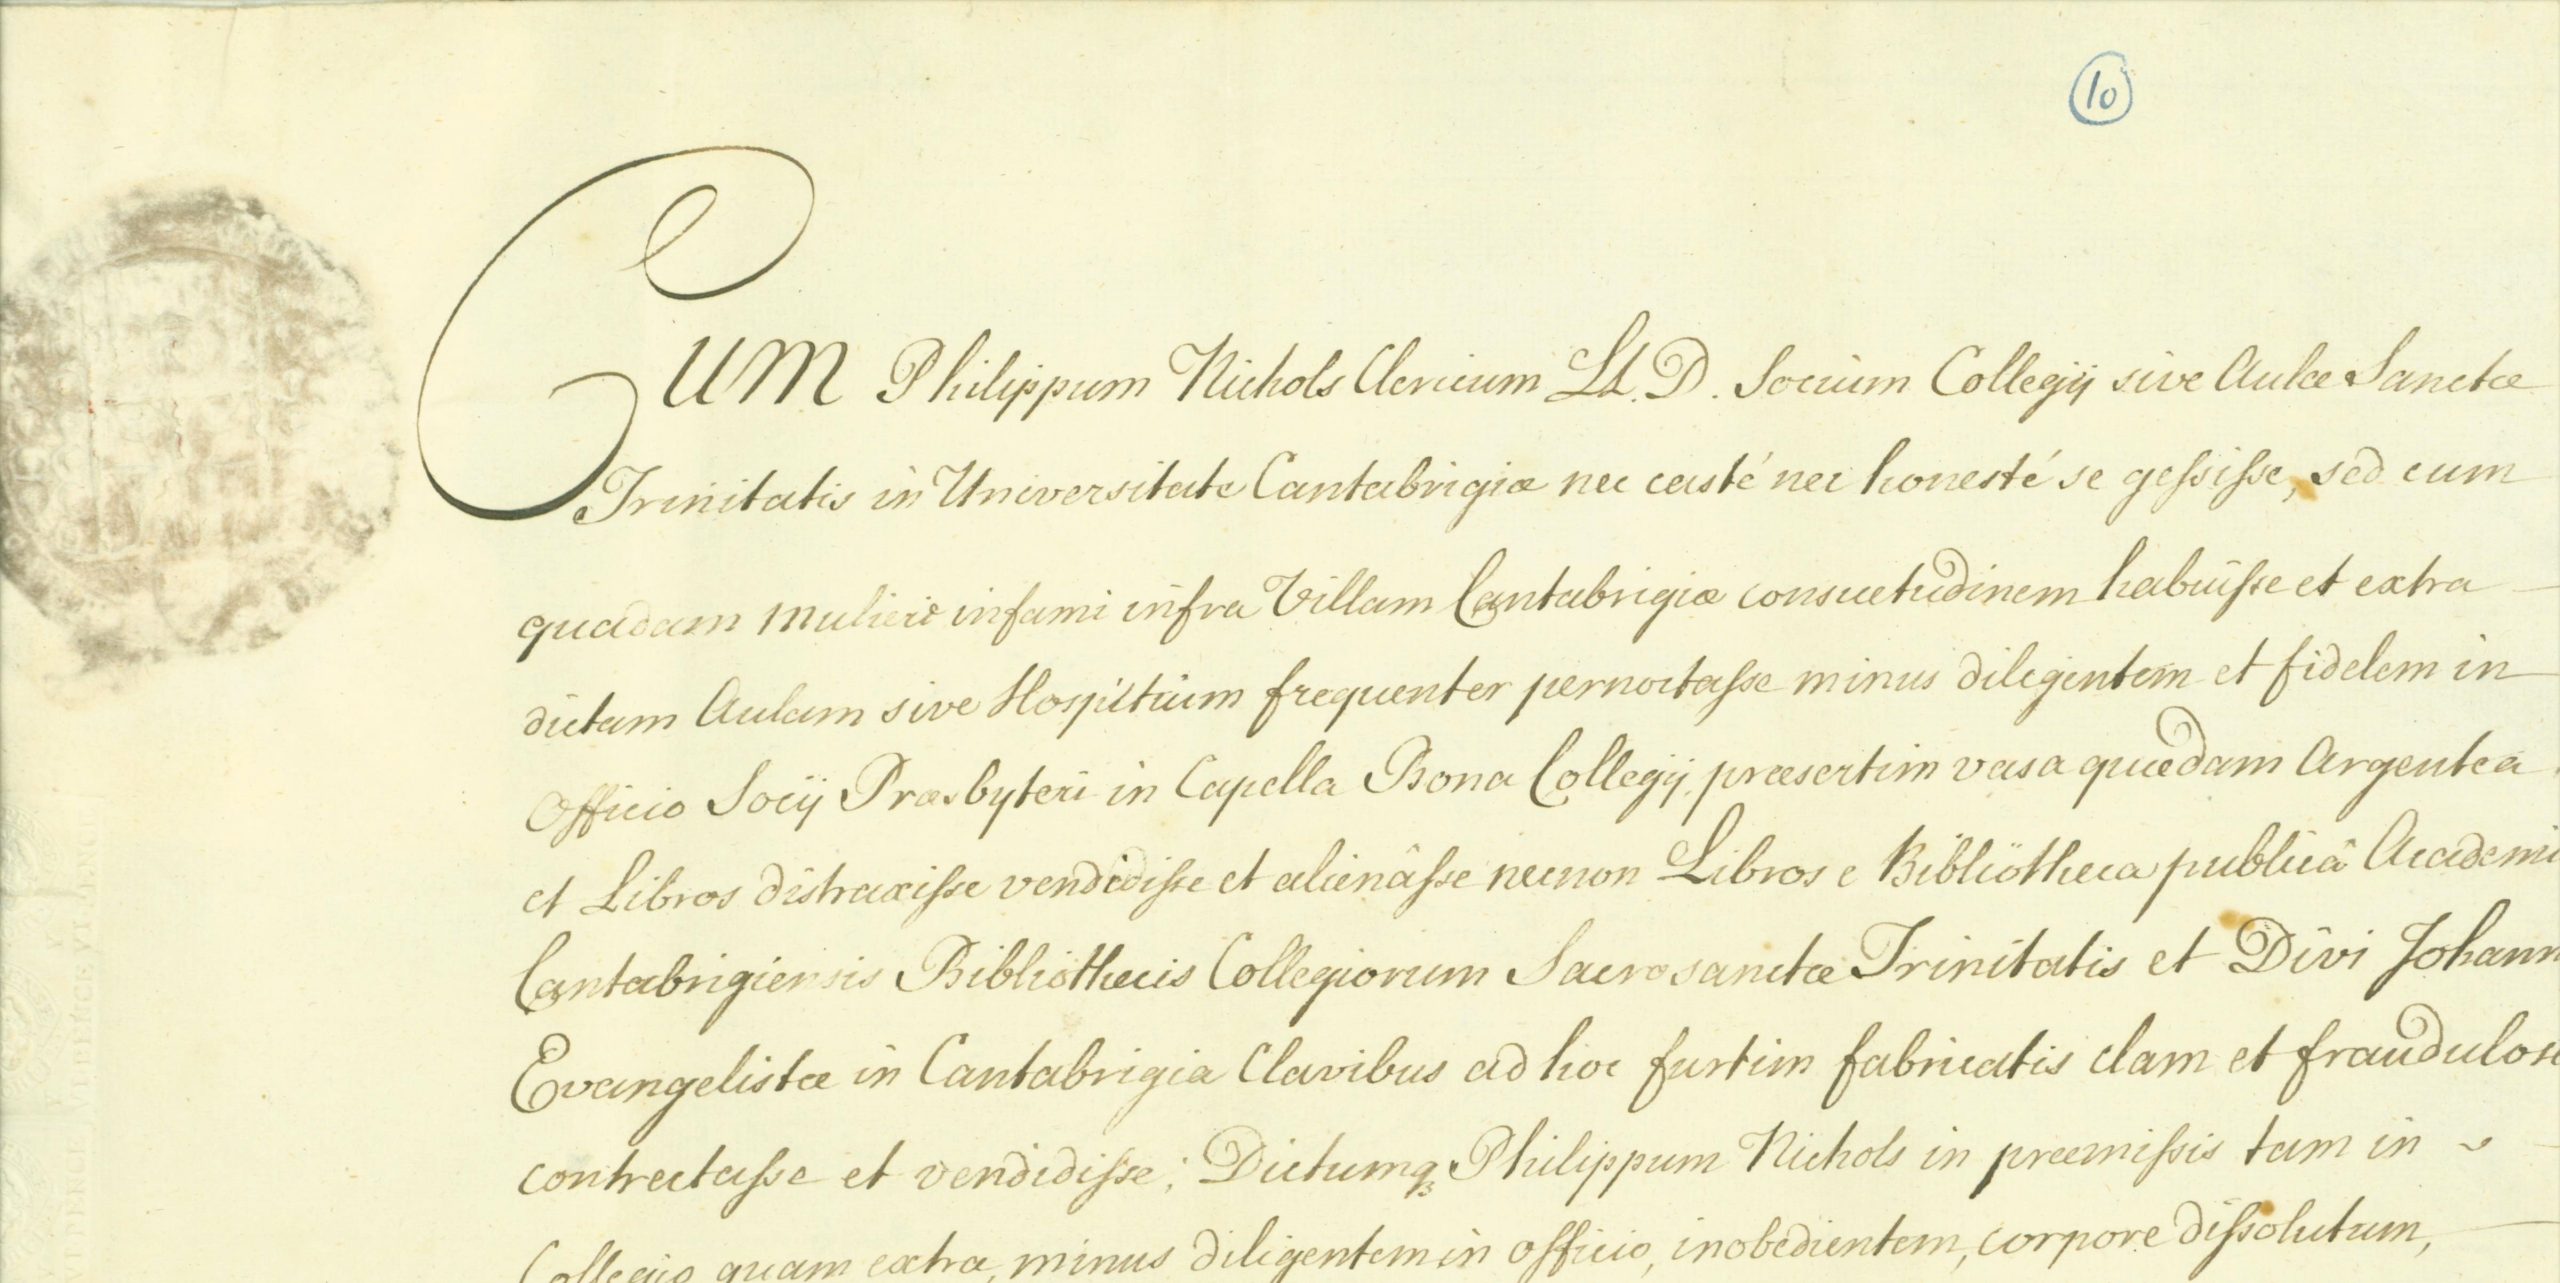 10
Cum Philippum Nichols Clericum LL.D. Socium Collegij sive Aulæ Sanctæ
Trinitatis in Universitate Cantabrigiæ nec casté nec honesté se geſsiſse, sed cum
quadam muliere infami infra Villam Cantabrigiæ consuetudinem habuiſse et extra
dictam Aulam sive Hospitium frequenter pernoctaſse minus diligentem et fidelem in
Officio Socij Præsbyteri in Capella Bona Collegij, præsertim vasa quædam Argentea
et Libros distraxiſse vendidiſse et alienâſse necnon Libros e Bibliotheca publicâ Academi
Cantabrigiensis Bibliothecis Collegiorum Sacrosanctæ Trinitatis et Divi Johann
Evangelistæ in Cantabrigia Clavibus ad hoc furtim fabricatis clam et fraudulose
contrectaſse et vendidiſse; Dictumqꝫ Philippum Nichols in præmiſsis tam in
Collegio quam extra, minus diligentem in officio, inobedientem, corpore diſsolutum,